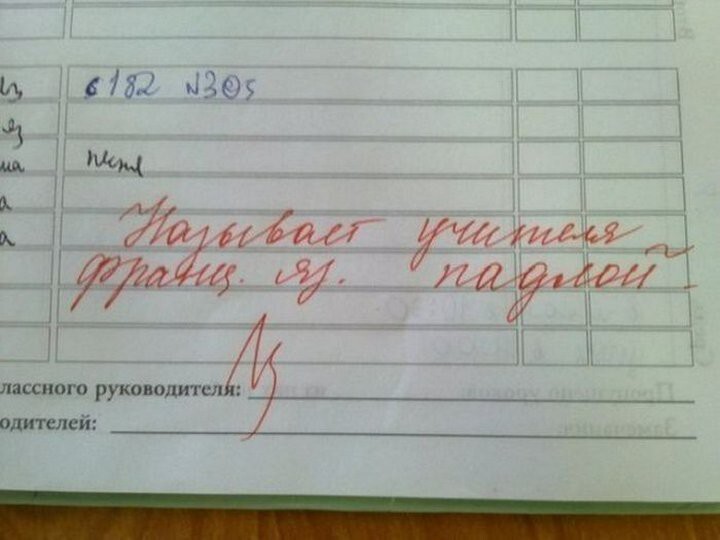 с 182 №305
яз
ма
песня
а
а
Называет учителя
франц. яз. падлой.
лассного руководителя:
одителей: